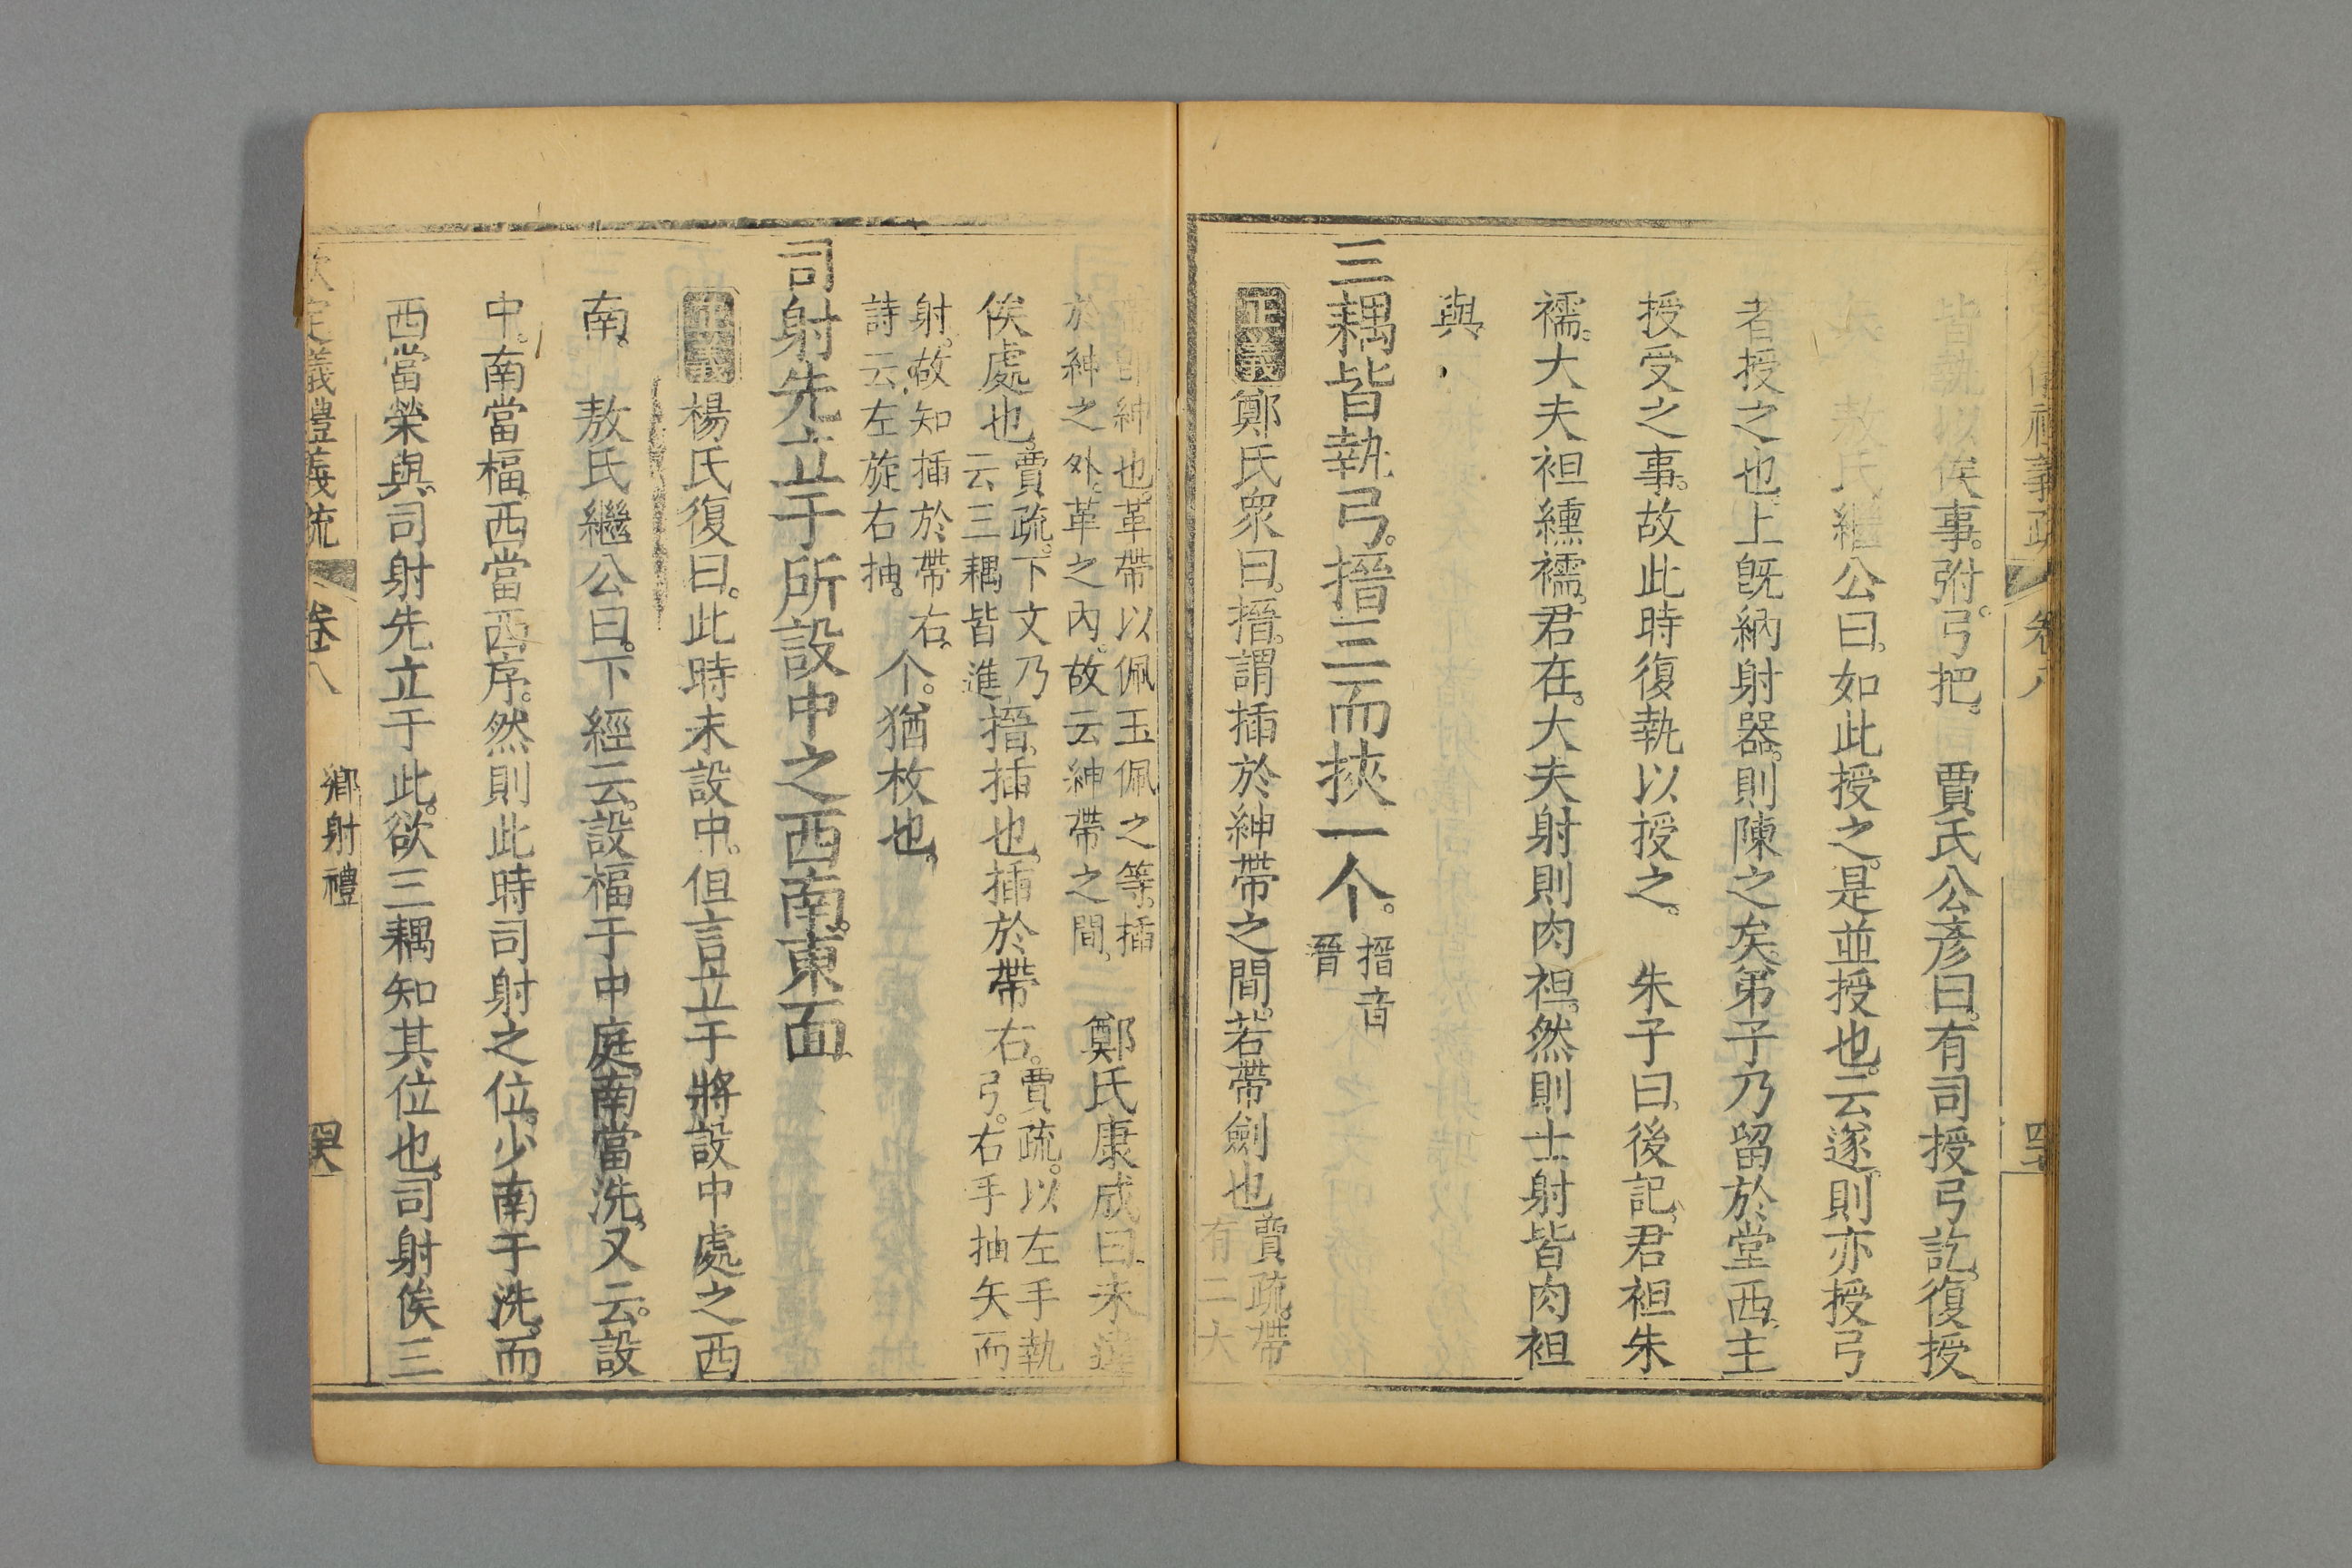 皆就以俟事。弣弓。把。　賈氏公彥曰。有司授弓訖。復授
矢。　敖氏繼公曰。如此授之。是並授也。云遂。則亦授弓
者授之也。上旣納射器。則陳之矣。弟子乃留於堂西。主
授受之事。故此時復執以授之。　朱子曰。後記。君袒朱
襦。大夫袒纁襦。君在。大夫射則肉袒。然則士射皆肉袒
與。
三耦皆執弓。搢三而挾一个。搢音
晉
正義鄭氏衆曰。搢。謂插於紳帶之間。若帶劍也。賈疏。帶
有二大
帶卽紳也。革帶以佩玉佩之等。插
於紳之外。革之內。故云紳帶之間。鄭氏康成曰。未違
俟處也。賈疏。下文乃
云三耦皆進搢。插也。插於帶右。賈疏。以左手執
弓。右手抽矢而
射。故知插於帶右。
詩云。左旋右抽。个。猶枚也。
司射先立于所設中之西南。東面。
正義楊氏復曰。此時未設中。但言立于將設中處之西
南。　敖氏繼公曰。下經云。設楅于中庭。南當洗。又云。設
中。南當楅。西當西序。然則此時司射之位。少南于洗。而
西當榮與。司射先立于此。欲三耦知其位也。司射俟三
欽定儀禮義疏　卷八　鄉射禮